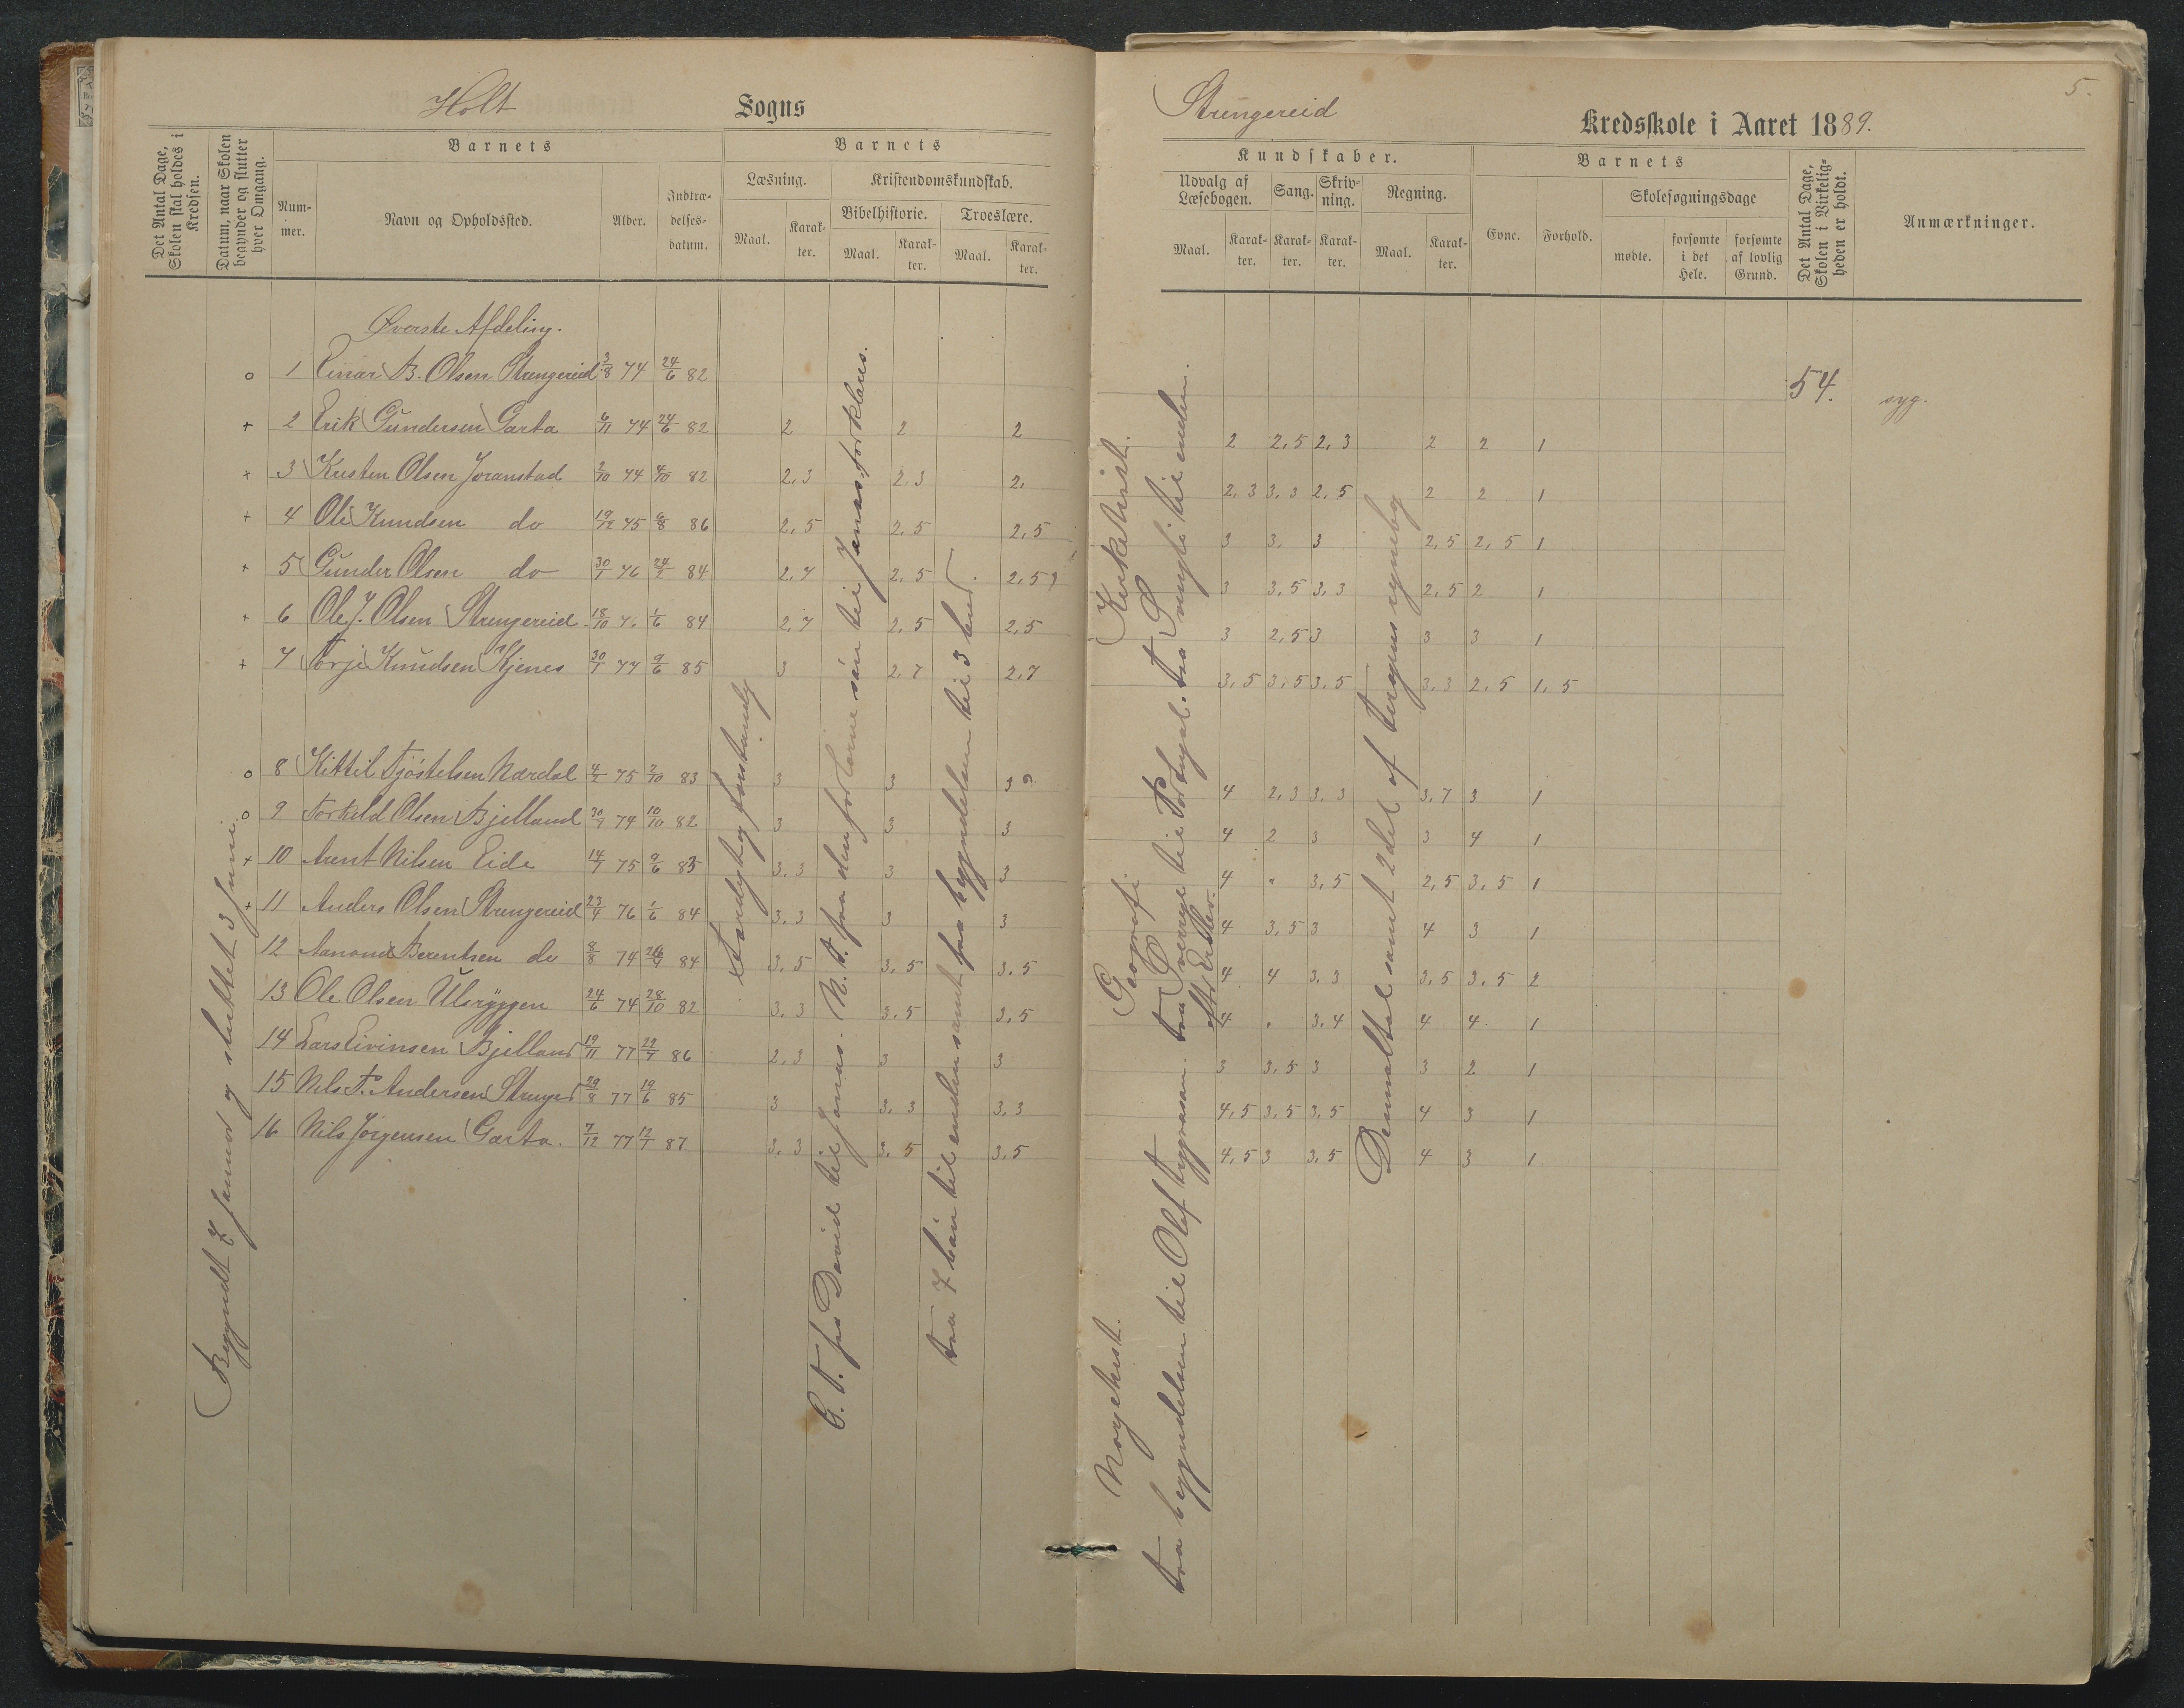 Holt Sogns
Det Antal Dage, Skolen skal holdes i Kredsen.
Datum, naar Skolen begynder og slutter hver Omgang.
Barnets
Nummer.
Navn og Opholdssted.
Alder.
Indtrædelsesdatum.
Barnets
Læsning.
Kristendomskundskab.
Bibelhistorie.
Troeslære.
Maal. Karakter. Maal. Karakter. Maal. Karakter.
Øverste Afdeling.
o 1 Einar B. Olsen Strengereid 3/8 74 24/6 82
+ 2 Erik Gundersen Garta 6/11 74 24/6 82 2 2 2
+ 3 Kristen Olsen Joranstad 2/10 74 4/10 82 2,3 2,3 2,
+ 4 Ole Knudsen do 19/12 75 6/8 86 2,5 2,5 2,5
+ 5 Gunder Olsen do 30/1 76 24/2 84 2,7 2,5 2,5
+ 6 Ole J. Olsen Strengereid 18/10 76 1/6 84 2,7 2,5 2,5
+ 7 Torje Knudsen Kjenes 30/1 77 9/6 85 3 2,7 2,7
o 8 Kittil Tjöstelsen Nærdal 4/2 75 2/10 83 3 3 3
o 9 Torkild Olsen Bjelland 30/7 74 10/10 82 3 3 3
+ 10 Arent Nilsen Eide 14/7 75 9/6 83 3,3 3 3
+ 11 Anders Olsen Strengereid 23/4 76 1/6 84 3,3 3 3
12 Aanond Berentsen do 8/8 74 26/4 84 3,5 3,5 3,5
13 Ole Olsen Ulsryggen 24/6 74 28/10 82 3,3 3,5 3,5
14 Lars Eivinsen Bjelland 19/11 77 22/7 86 2,3 3 3
15 Nils T. Andersen Strenger 29/8 77 19/6 85 3 3,3 3,3
16 Nils Jörgensen Garta. 7/12 77 12/1 87 3,3 3,5 3,5
Begyndt 7 Januar og sluttet 3 Juni.
Færdighed forstandig
G. T. fra David til Jonas. N. T. fra den fortabne sön til Jesus forklares.
Fra 7 bön til enden samt fra begyndelsen til 3 bud.
Strengereid Kredsskole i Aaret 1889.
5.
Kundskaber.
Udvalg af Læsebogen.
Sang.
Skrivning.
Regning.
Maal. Karakter. Karakter. Karakter. Maal. Karakter.
Barnets
Evne. Forhold.
Skolesøgningsdage
mødte. forsømte i det Hele. forsømte af lovlig Grund.
Det Antal Dage, Skolen i Virkeligheden er holdt.
Anmærkninger.
54. syg.
2 2,5 2,3 2 2 1
2,3 3,3 2,5 2 2 1
3 3, 3 2,5 2,5 1
3 3,5 3,3 2,5 2 1
3 2,5 3 3 3 1
3,5 3,5 3,5 3,3 2,5 1,5
4 2,3 3,3 3,7 3 1
4 2 3 3 4 1
4 " 3,5 2,5 3,5 1
4 3,5 3 4 3 1
4 4 3,3 3,5 3,5 2
4 " 3,4 4 4 1
3 3,5 3 3 2 1
4,5 3,5 3,5 4 3 1
4,5 3 3,5 4 3 1
Norgehist.
Fra begyndelsen til Olaf Trygvason.
Geografi
Fra Sverige til Portugal.
Kirkehist.
Fra Svingli til enden.
Decimaltal samt 2del af